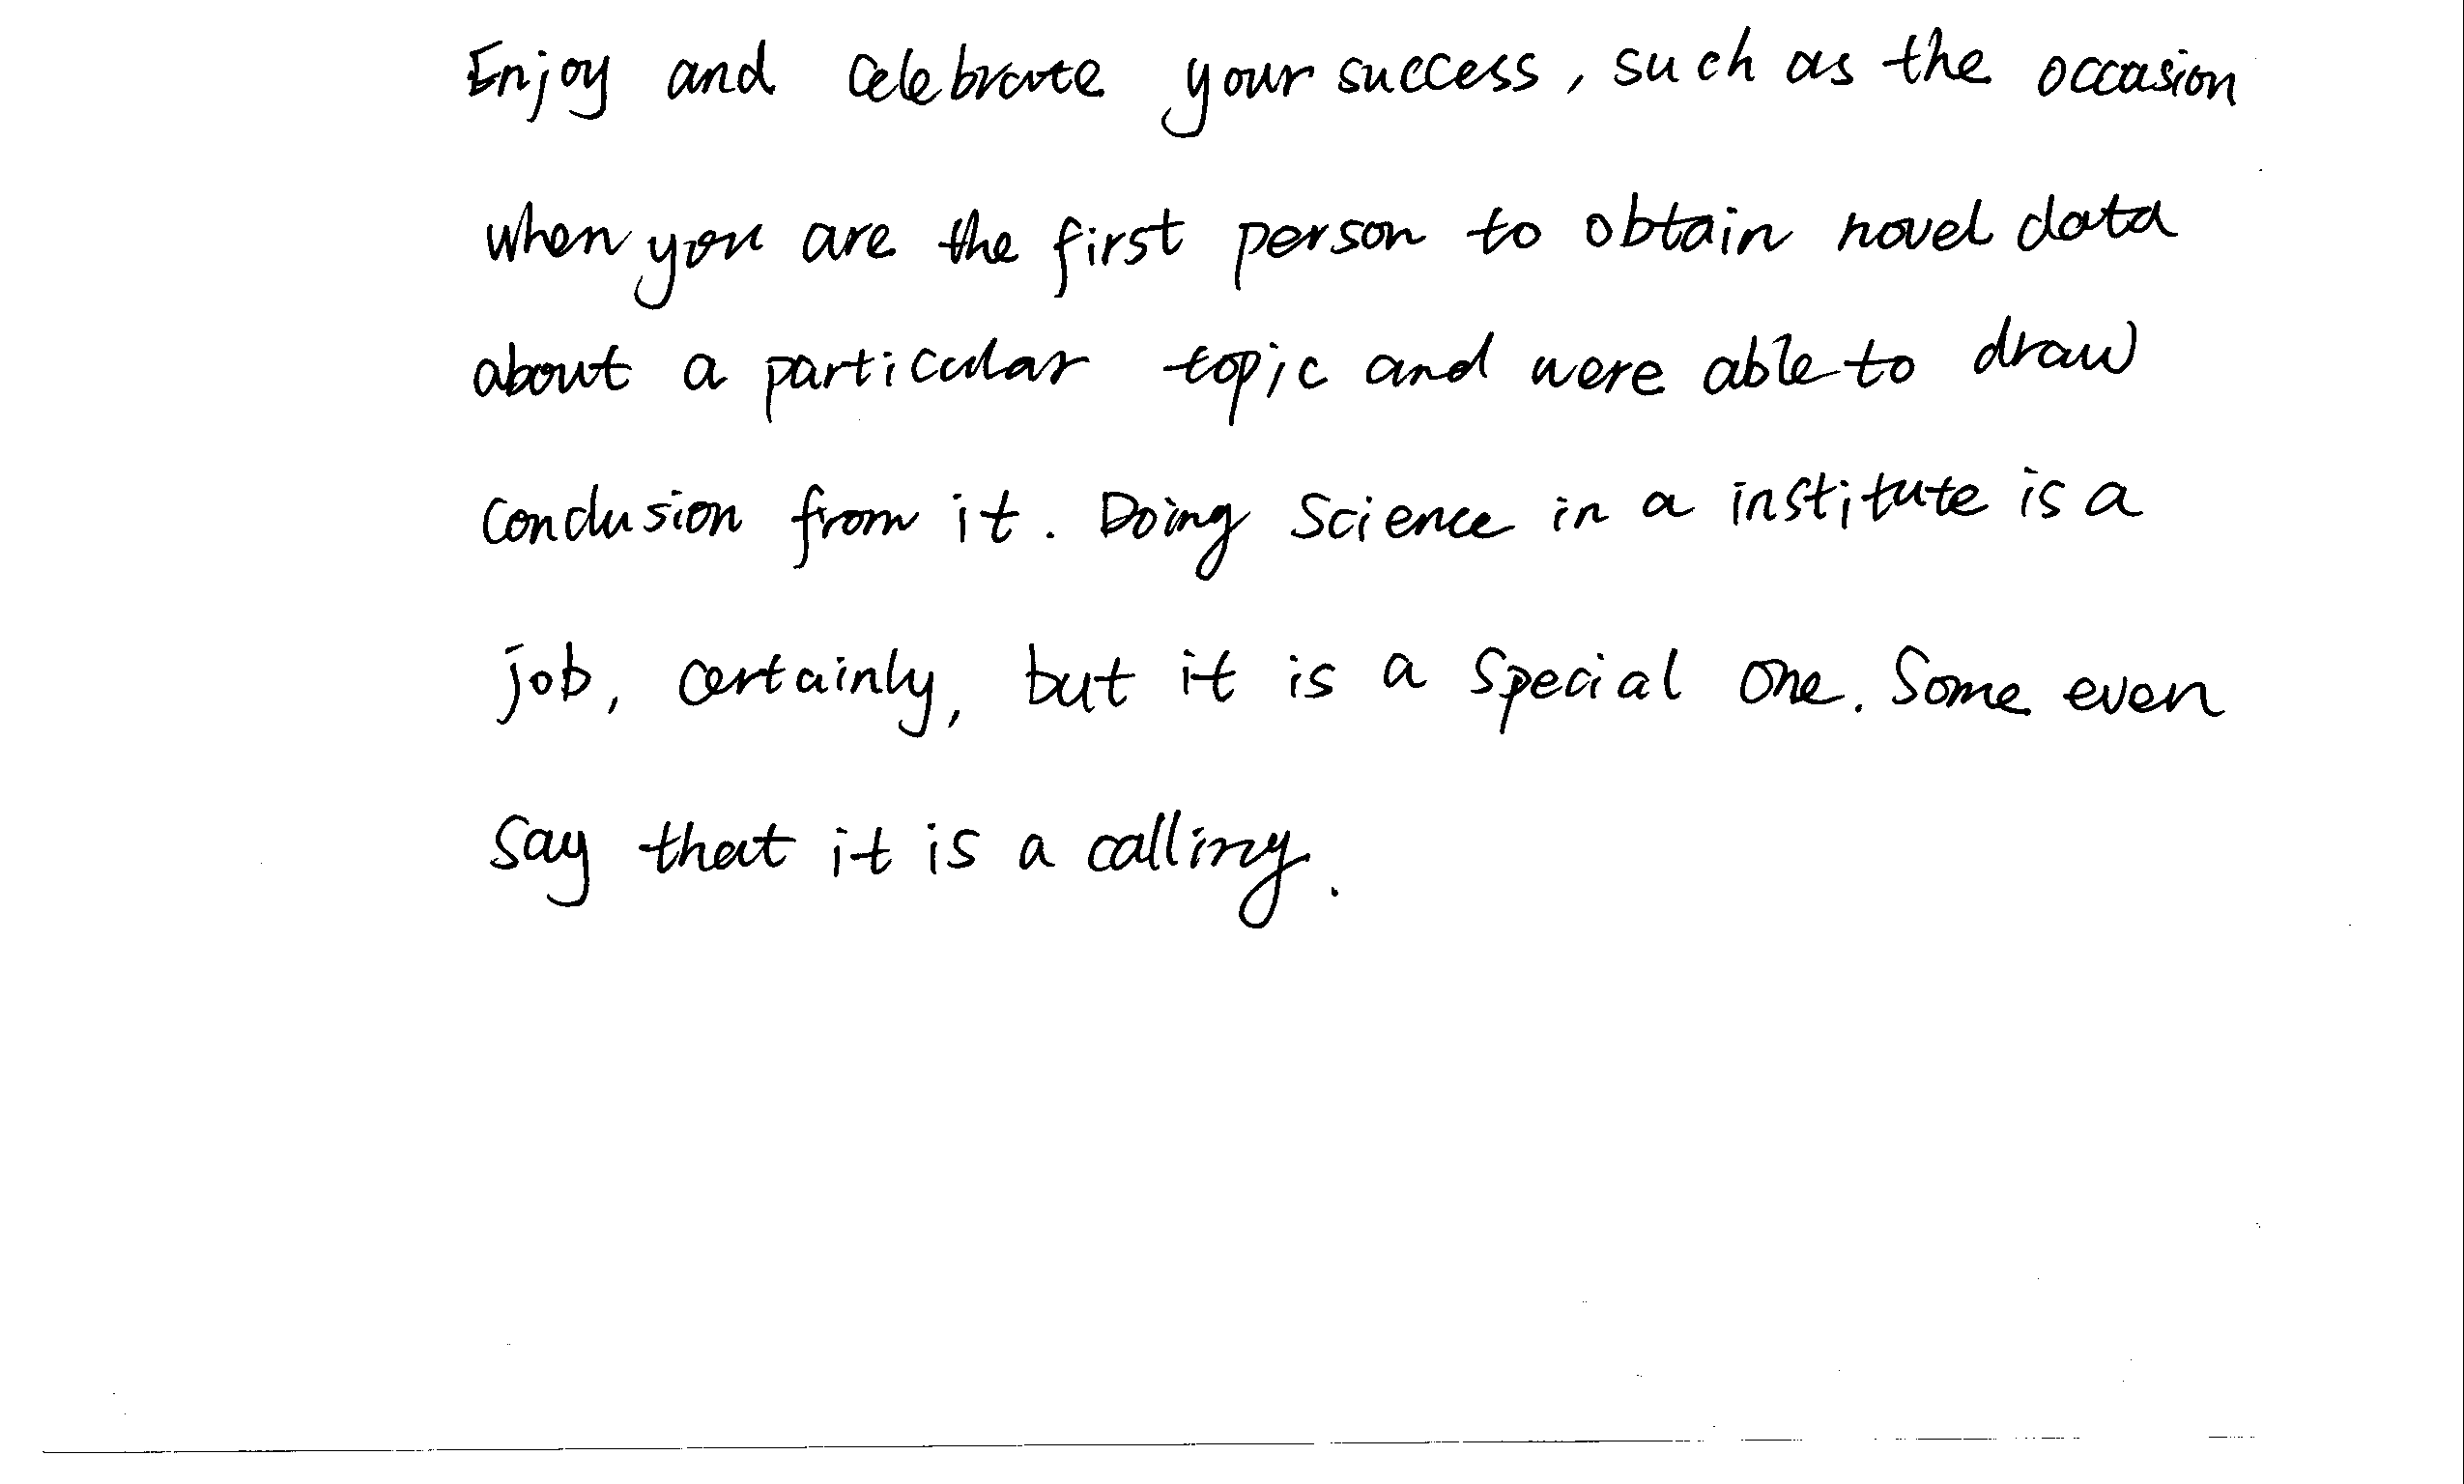 Enjoy and celebrate your success, such as the occasion
when you are the first person to obtain novel data
about a particular topic and were able to draw
conclusion from it. Doing Science in a institute is a
job, certainly, but it is a special one. Some even
say that it is a calling.